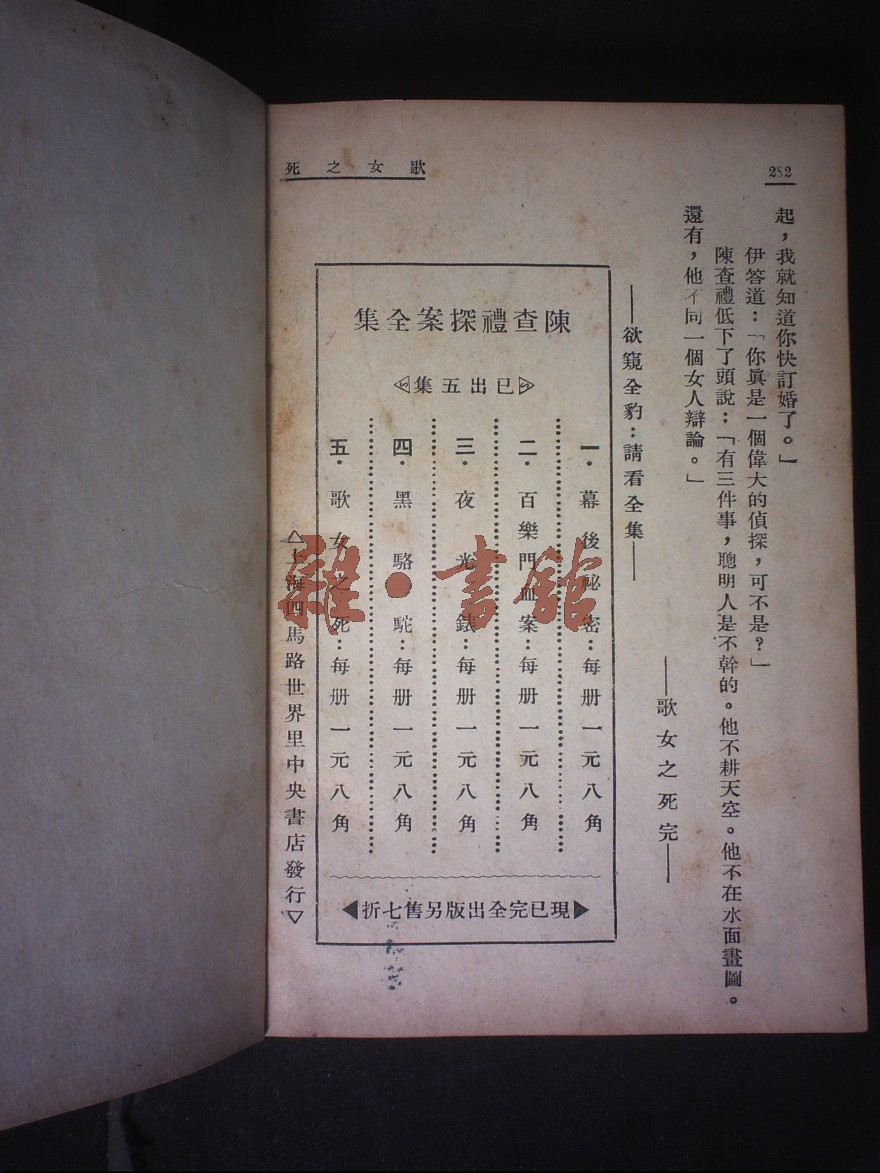 歌女之死
282
起，我就知道你快訂婚了。」
伊答道：「你眞是一個偉大的偵探，可不是？」
陳查禮低下了頭說：「有三件事，聰明人是不幹的。他不耕天空。他不在水面畫圖。
還有，他不同一個女人辯論。」
——歌女之死完——
——欲窺全豹：請看全集——
陳查禮探案全集
已出五集
一・幕後祕密：每册一元八角
二・百樂門血案：每册一元八角
三・夜光錶：每册一元八角
四・黑駱駝：每册一元八角
五・歌女之死：每册一元八角
▶現已完全出版另售七折◀
△上海四馬路世界里中央書店發行▽
雜・書館